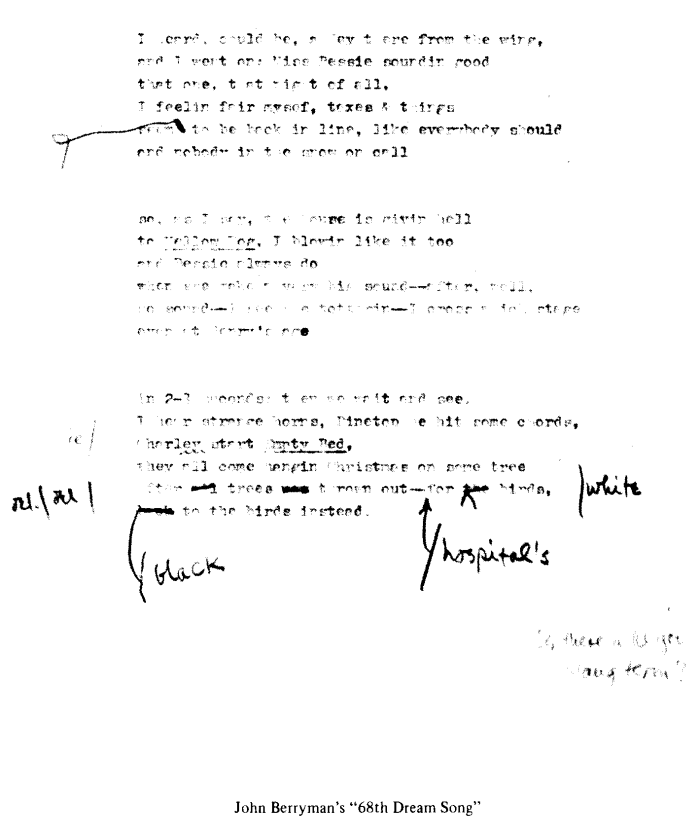 I heard, could be, a Hey there from the wing,
and I went on: Miss Bessie soundin good
that one, that night of all,
I feelin fair mysef, taxes & things
seem to be back in line, like everybody should
and nobody in the snow on call
so, as I say, the house is givin hell
to Yellow Dog, I blowin like it too
and Bessie always do
when she make a very big sound—after, well,
no sound—I see she totterin—I cross stage
even at Henry's age
in 2-3 seconds: then we wait and see.
I hear strange horns, Pinetop he hit some chords,
Charley start Empty Bed,
they all come hangin Christmas on some tree
after trees thrown out—for birds,
to the birds instead.
white
black
hospital's
term?
John Berryman's “68th Dream Song”